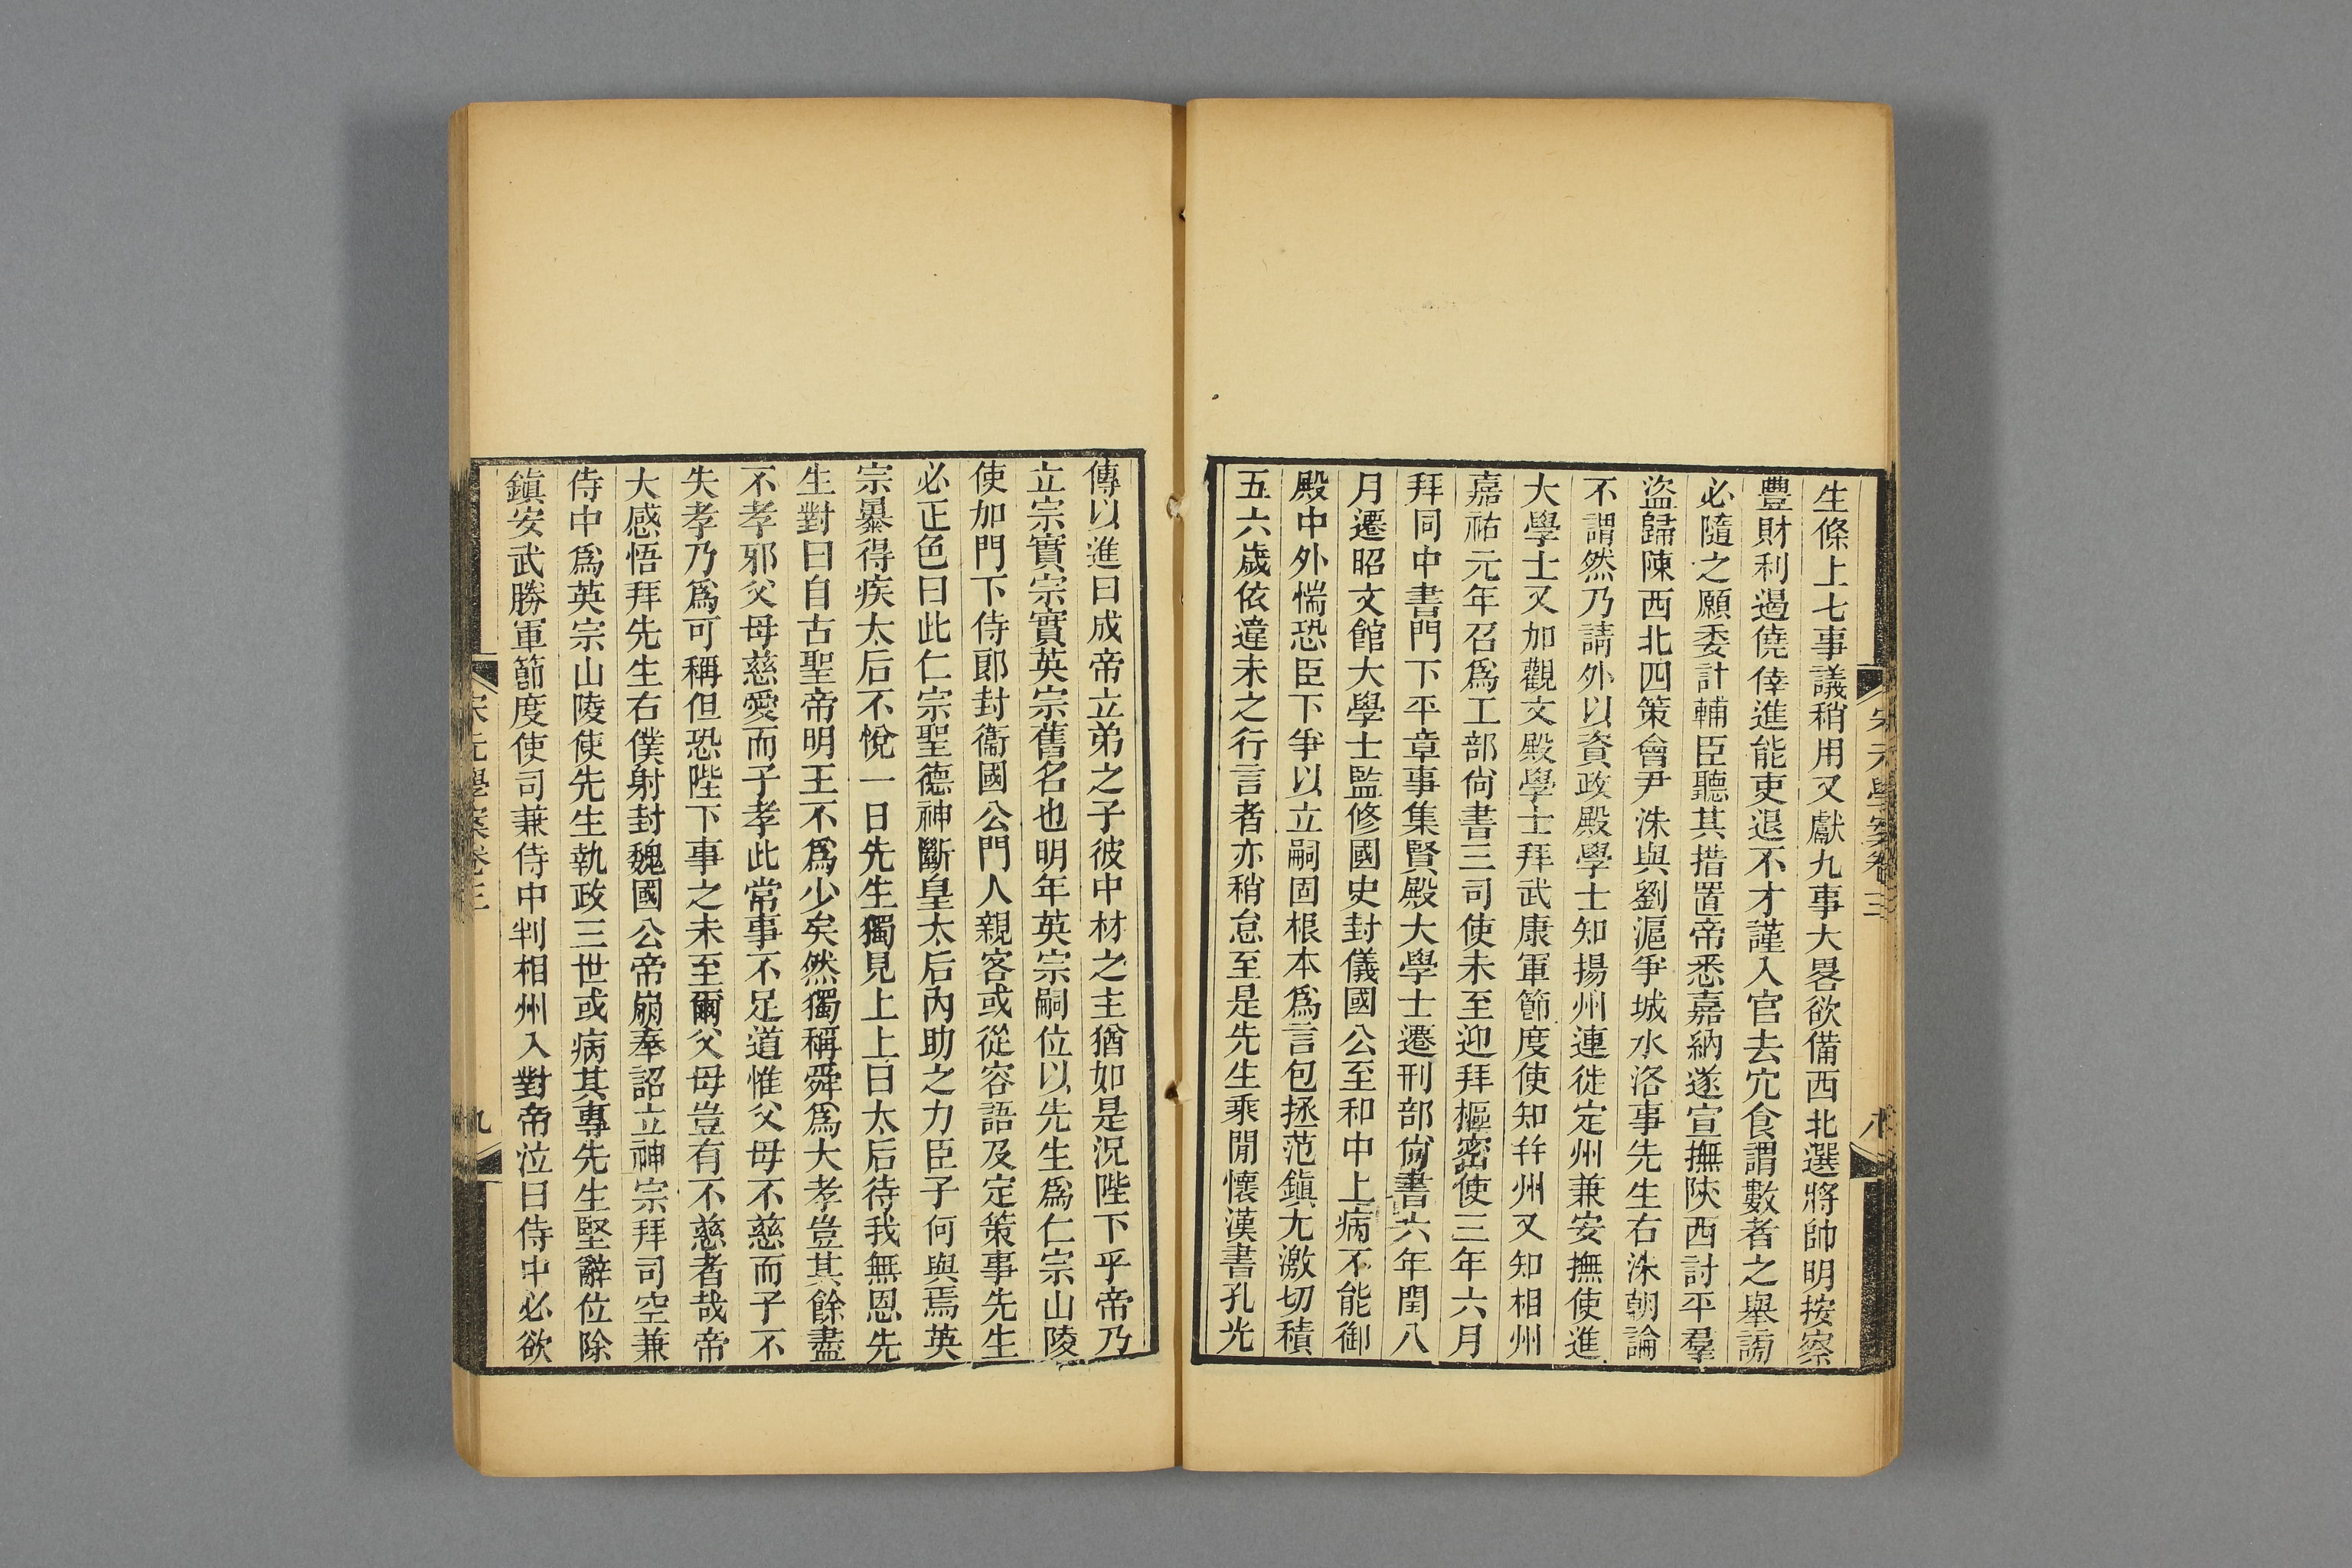 生條上七事議稍用又獻九事大畧欲備西北選將帥明按察
豐財利遏僥倖進能吏退不才謹入官去冗食謂數者之舉謗
必隨之願委計輔臣聽其措置帝悉嘉納遂宣撫陝西討平羣
盜歸陳西北四策會尹洙與劉滬爭城水洛事先生右洙朝論
不謂然乃請外以資政殿學士知揚州連徙定州兼安撫使進
大學士又加觀文殿學士拜武康軍節度使知幷州又知相州
嘉祐元年召爲工部尙書三司使未至迎拜樞密使三年六月
拜同中書門下平章事集賢殿大學士遷刑部尙書六年閏八
月遷昭文館大學士監修國史封儀國公至和中上病不能御
殿中外惴恐臣下爭以立嗣固根本爲言包拯范鎭尢激切積
五六歲依違未之行言者亦稍怠至是先生乘閒懷漢書孔光
宋元學案卷三
八
傳以進曰成帝立弟之子彼中材之主猶如是況陛下乎帝乃
立宗實宗實英宗舊名也明年英宗嗣位以先生爲仁宗山陵
使加門下侍郎封衞國公門人親客或從容語及定策事先生
必正色曰此仁宗聖德神斷皇太后內助之力臣子何與焉英
宗暴得疾太后不悅一日先生獨見上上曰太后待我無恩先
生對曰自古聖帝明王不爲少矣然獨稱舜爲大孝豈其餘盡
不孝邪父母慈愛而子孝此常事不足道惟父母不慈而子不
失孝乃爲可稱但恐陛下事之未至爾父母豈有不慈者哉帝
大感悟拜先生右僕射封魏國公帝崩奉詔立神宗拜司空兼
侍中爲英宗山陵使先生執政三世或病其專先生堅辭位除
鎭安武勝軍節度使司兼侍中判相州入對帝泣曰侍中必欲
宋元學案卷三
九